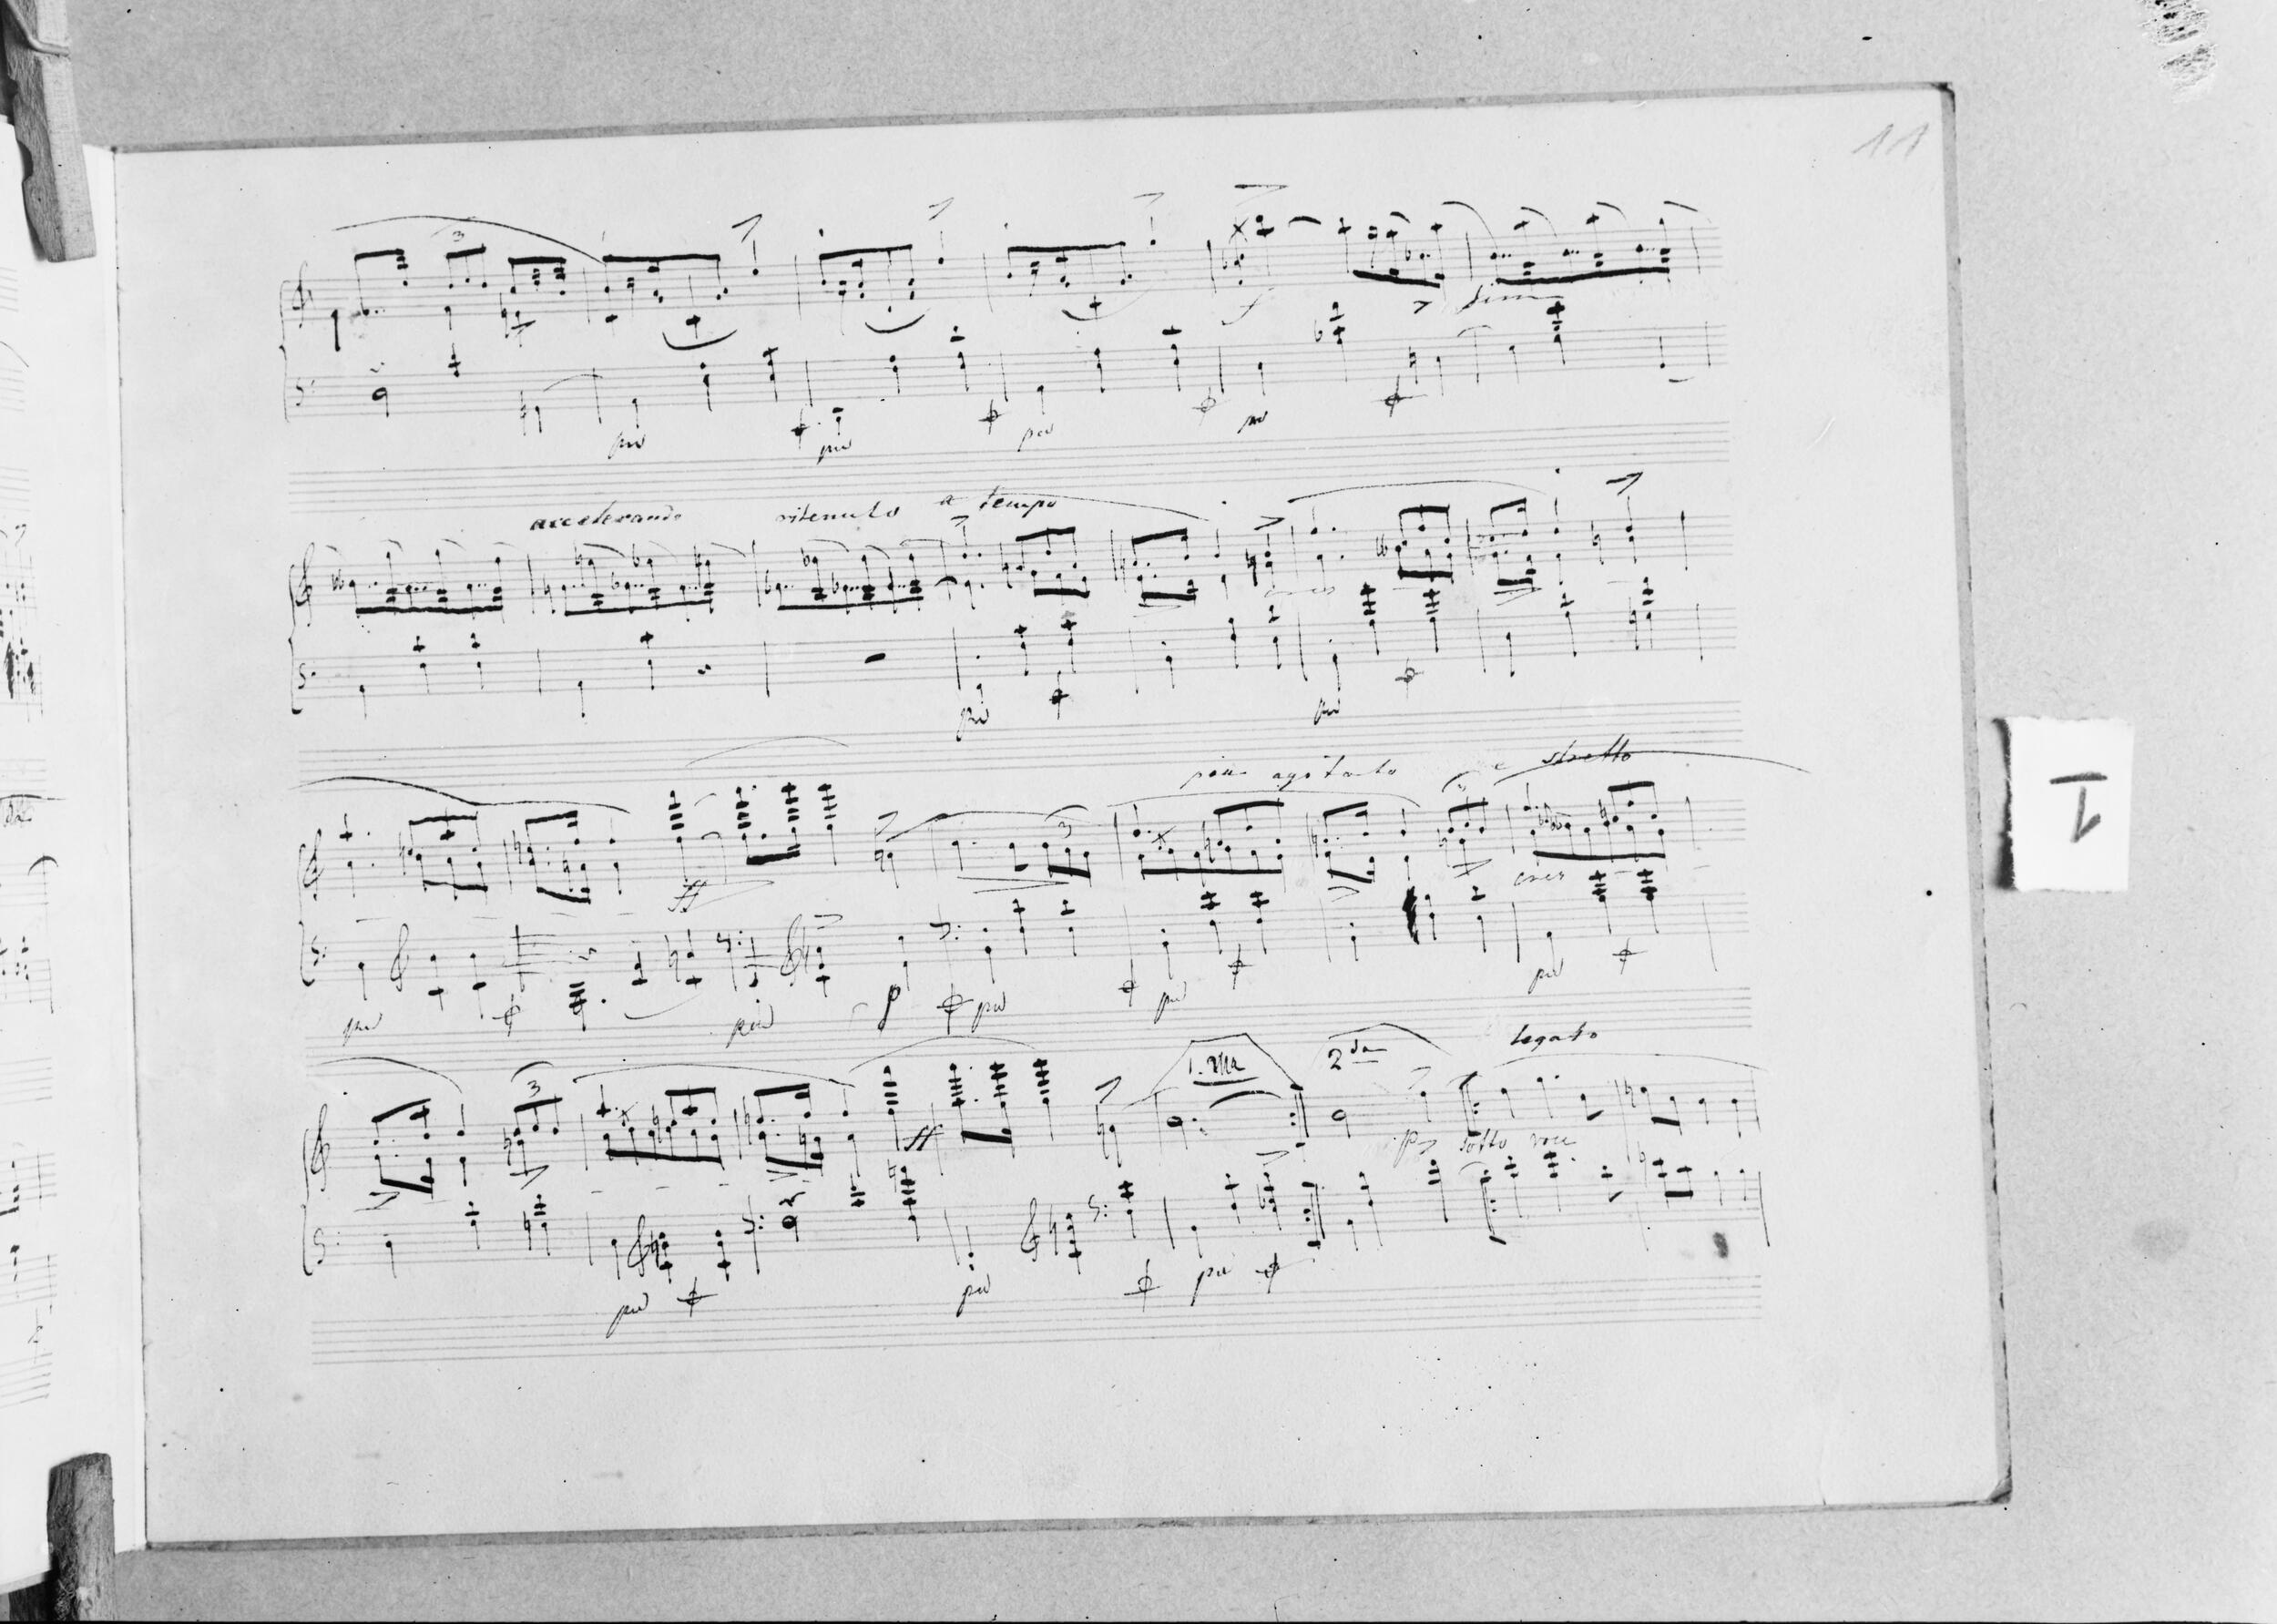 11
3
f dim
ped ped ped ped
accelerando ritenuto a tempo
cres
ped ped
piu agitato e stretto
3 3
ff cres
ped ped p ped ped ped
1. ma 2 da legato
3
ff p sotto voce
ped ped ped
1